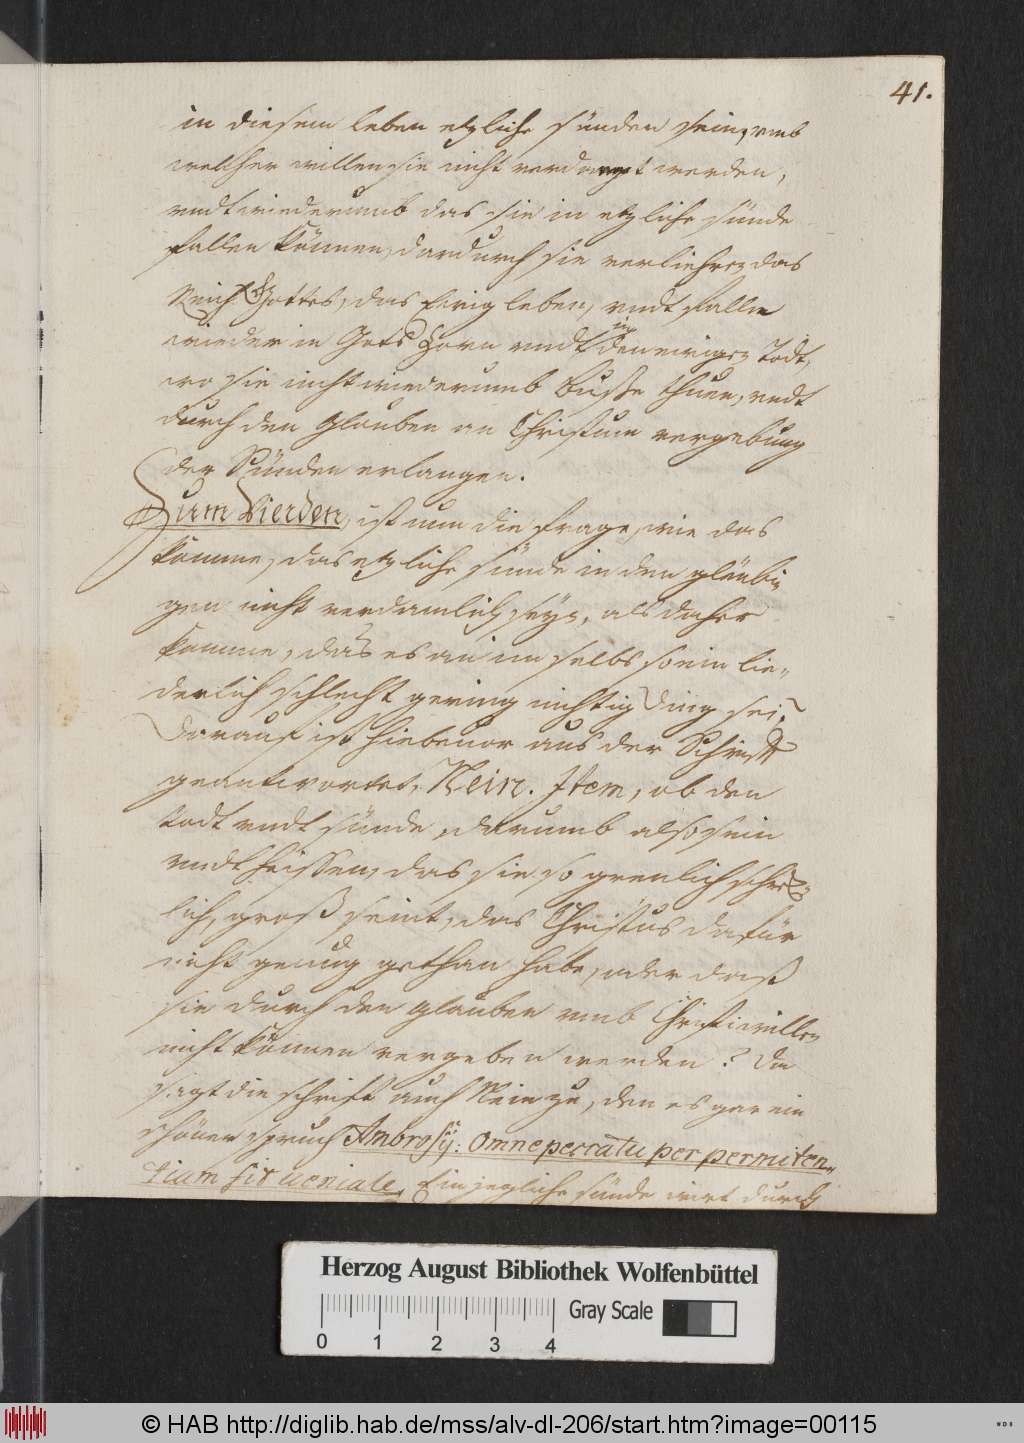 41.
in diesem leben etzliche sünden sein, vmb
welcher willen sie nicht verdampt werden,
vndt wiederumb das sie in etzliche sünde
fallen können, dardurch sie verliehren das
Reich Gottes, das Ewig leben, vndt fallen
wieder in Gots Zorn vndt in den ewigen Todt,
wo sie nicht wiederumb busse thuen, vndt
durch den Glauben an Christum vergebung
der Sünden erlangen.
Zum Vierden, ist nun die frage, wie das
komme, das etzliche sünde in den gläubi
gen nicht verdamlich seyn, als daher
komme, das es an im selbs so ein lie-
derlich schlecht gering nichtig ding sei,
Darauf ist hiebeuor aus der Schrifft
geantwortet, Nein. Item, ob den
todt vndt sünde, darumb also sein
vndt heissen, das sie so grewlich schrek
lich, groß seint, das Christus dafür
nicht genug gethan habe, oder daß
sie durch den glauben vmb Christi willen
nicht können vergeben werden? Da
sagt die schrifft auch Nein zu, den es gar ein
schöner spruch Ambrosij: Omne peccatu per permiten-
tiam fit ueniale, Ein jegliche sünde wirt durch
Herzog August Bibliothek Wolfenbüttel
Gray Scale
0 1 2 3 4
© HAB http://diglib.hab.de/mss/alv-dl-206/start.htm?image=00115